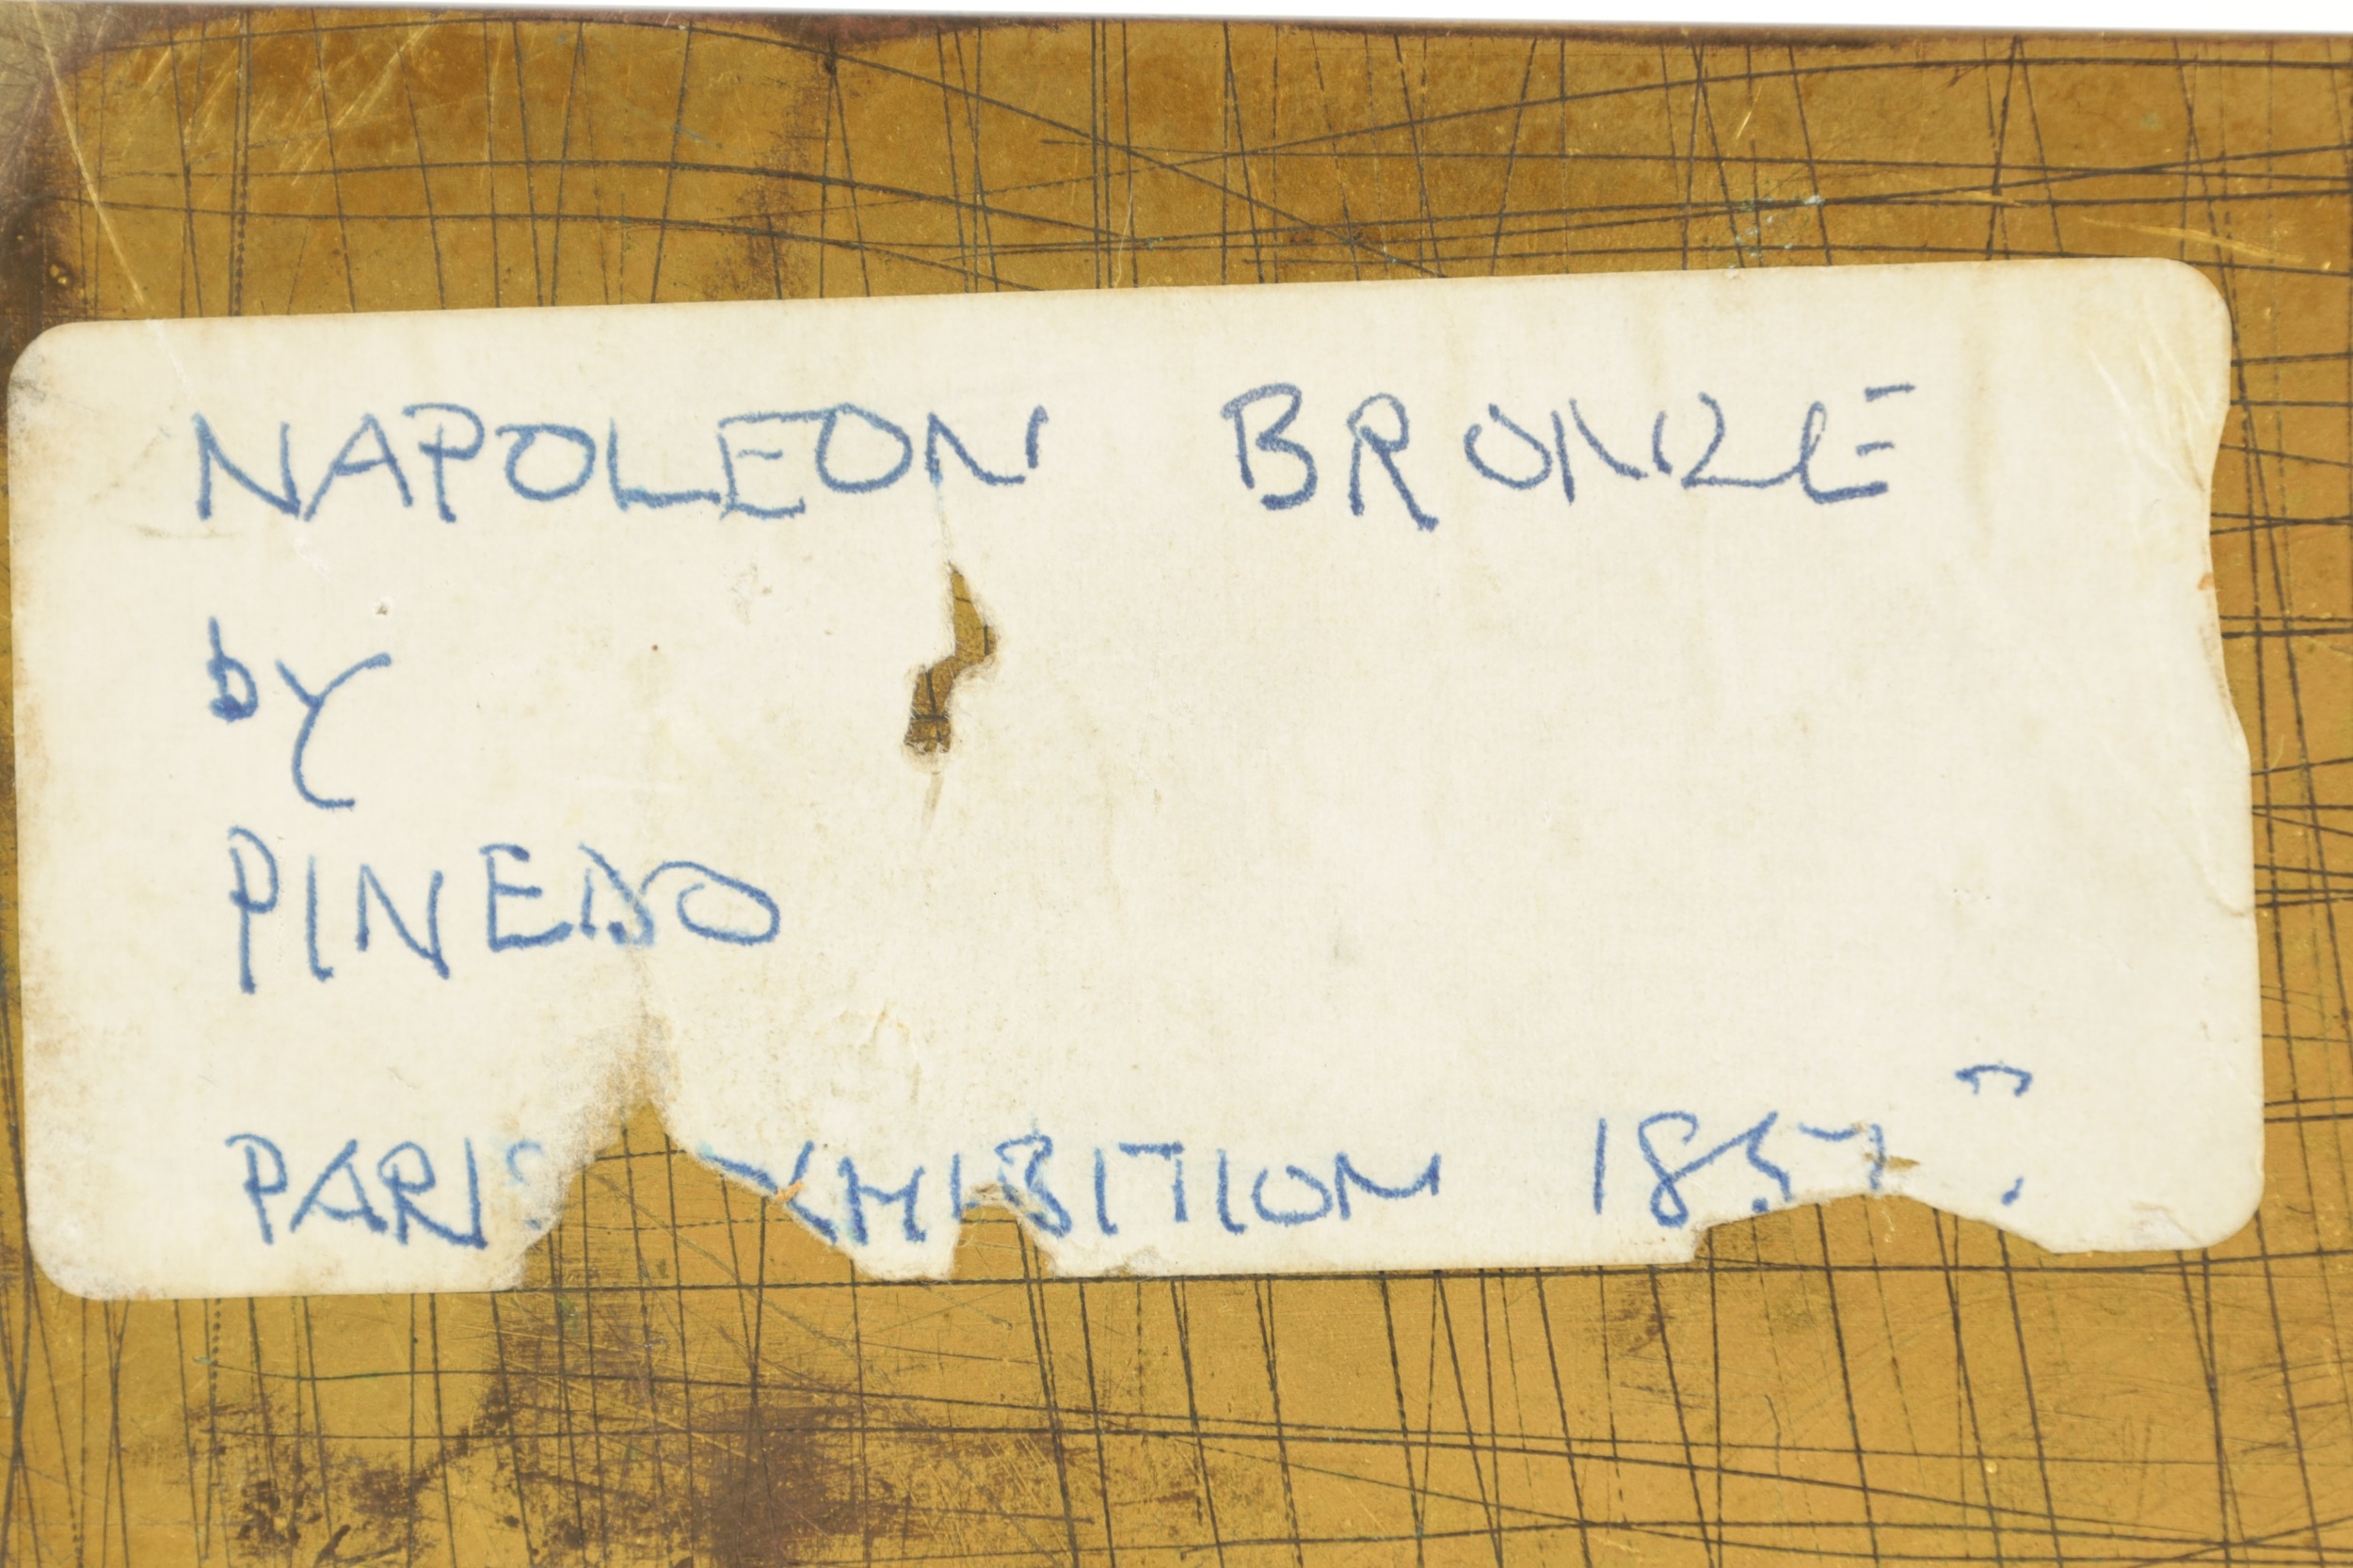 NAPOLEON BRONZE
by
PINEDO
PARIS EXHIBITION 185 ?